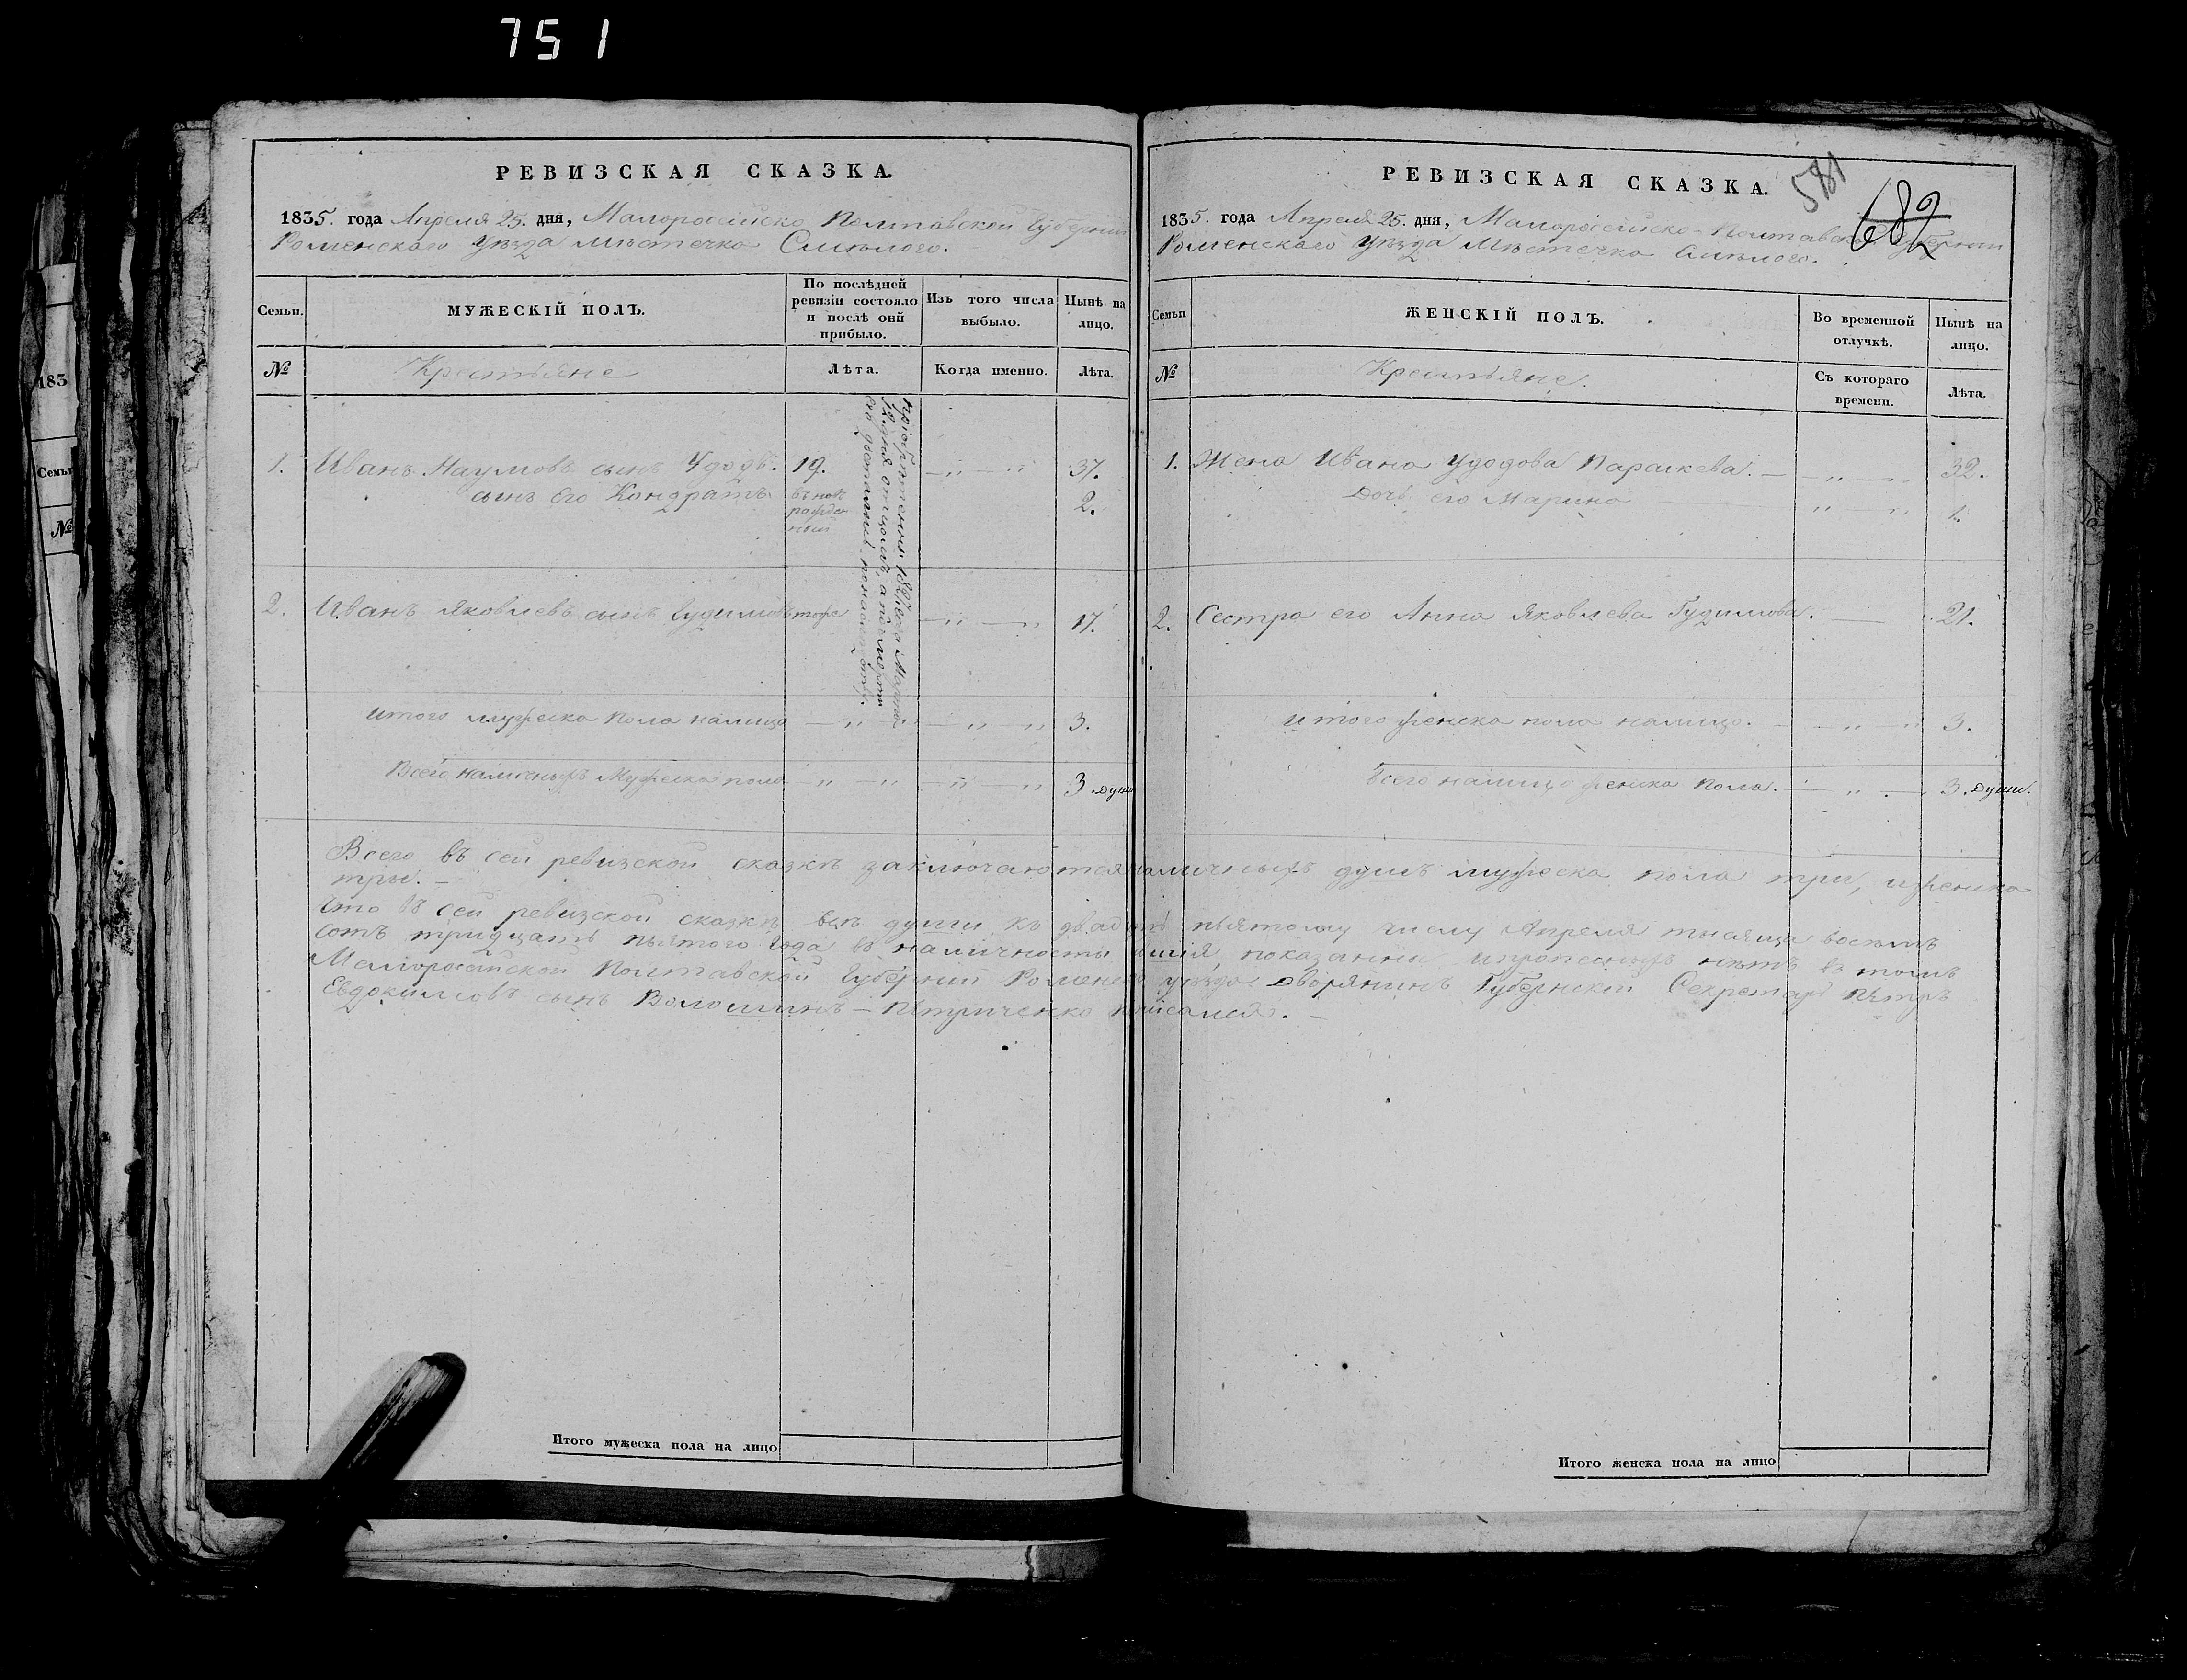 751
РЕВИЗСКАЯ СКАЗКА.
1835. года Апреля 25. дня, Малоросійско Полтавской Губерніи
Роменскаго Уѣзда мѣстечка Смѣлого.
Семьи.
МУЖЕСКІЙ ПОЛЪ.
По послѣдней ревизіи состояло и послѣ оной прибыло.
Изъ того числа выбыло.
Нынѣ на лицо.
№
Крестьяне
Лѣта.
Когда именно.
Лѣта.
1. Иванъ Наумовъ сынъ Удодъ. 19. 37.
сынъ его Кондратъ. вновь рожденный 2.
2. Иванъ Яковлевъ сынъ Гудимовъ тоже 17.
итого мужеска пола налицо 3.
Всего наличныхъ Мужеска пола 3. души
Итого мужеска пола на лицо
581
682
РЕВИЗСКАЯ СКАЗКА.
1835. года Апреля 25. дня, Малоросійско-Полтавской Губерніи
Роменскаго Уѣзда Мѣстечка Смѣлого.
Семьи
ЖЕНСКІЙ ПОЛЪ.
Во временной отлучкѣ.
Нынѣ на лицо.
№
Крестьяне.
Съ котораго времени.
Лѣта.
1. Жена Ивана Удодова Параскева. 32.
Дочь его Марина 1.
2. Сестра его Анна Яковлева Гудимова. 21.
итого женска пола налицо. 3.
Всего налицо женска пола. 3. души.
Всего въ сей ревизской сказкѣ заключаются наличныхъ душъ мужеска пола три, и женска
три.
Что въ сей ревизской сказкѣ всѣ души къ двадцать пьятому числу Апреля тысяща восемъ
сотъ тридцать пьятого года въ наличности показанны и прописныхъ нѣтъ въ томъ
Малоросійской Полтавской Губерніи Роменского уѣзда дворянинъ Губернскій Секретарь Петръ
Евдокимовъ сынъ Волошинъ-Петриченко писался.
Итого женска пола на лицо